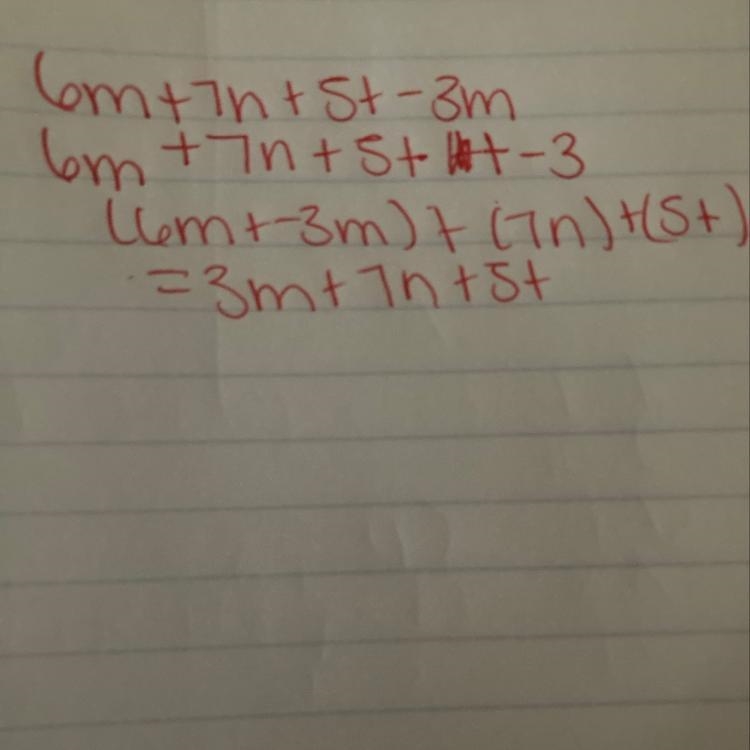 6m+7n+5t-3m
6m+7n+5t+-3
(6m+-3m)+(7n)+(5t)
=3m+7n+5t